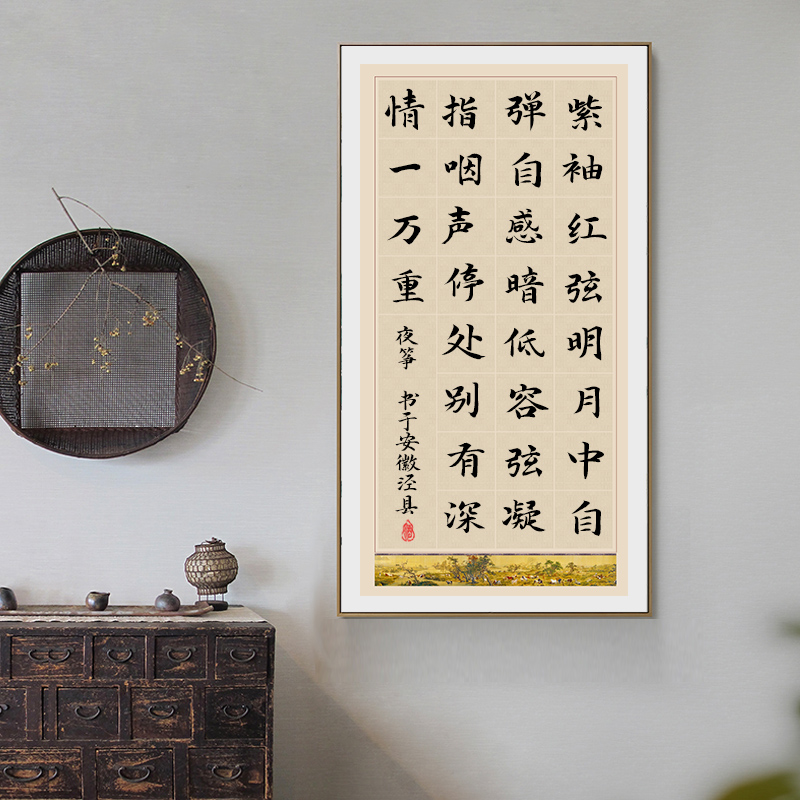 紫袖红弦明月中自
弹自感暗低容弦凝
指咽声停处别有深
情一万重 夜筝 书于安徽泾县